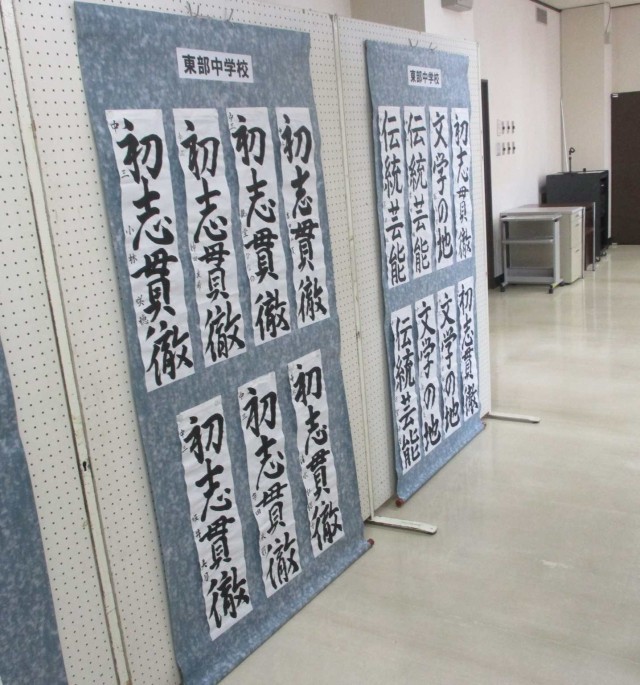 東部中学校
初志貫徹
初志貫徹
初志貫徹
初志貫徹
中三 小林
初志貫徹
初志貫徹
初志貫徹
東部中学校
初志貫徹
文学の地
伝統芸能
伝統芸能
初志貫徹
文学の地
文学の地
伝統芸能